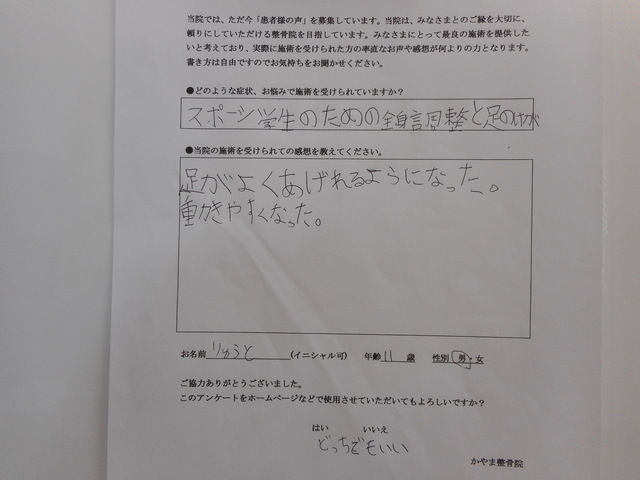 当院では、ただ今「患者様の声」を募集しています。当院は、みなさまとのご縁を大切に、
頼りにしていただける整骨院を目指しています。みなさまにとって最良の施術を提供した
いと考えており、実際に施術を受けられた方の率直なお声や感想が何よりの力となります。
書き方は自由ですのでお気持ちをお聞かせください。
●どのような症状、お悩みで施術を受けられていますか？
スポーツ学生のための全身調整と足のけが
●当院の施術を受けられての感想を教えてください。
足がよくあげれるようになった。
動かきやすくなった。
お名前 りゅうと (イニシャル可) 年齢 11 歳 性別 男・女
ご協力ありがとうございました。
このアンケートをホームページなどで使用させていただいてもよろしいですか？
はい いいえ
どっちでもいい
かやま整骨院